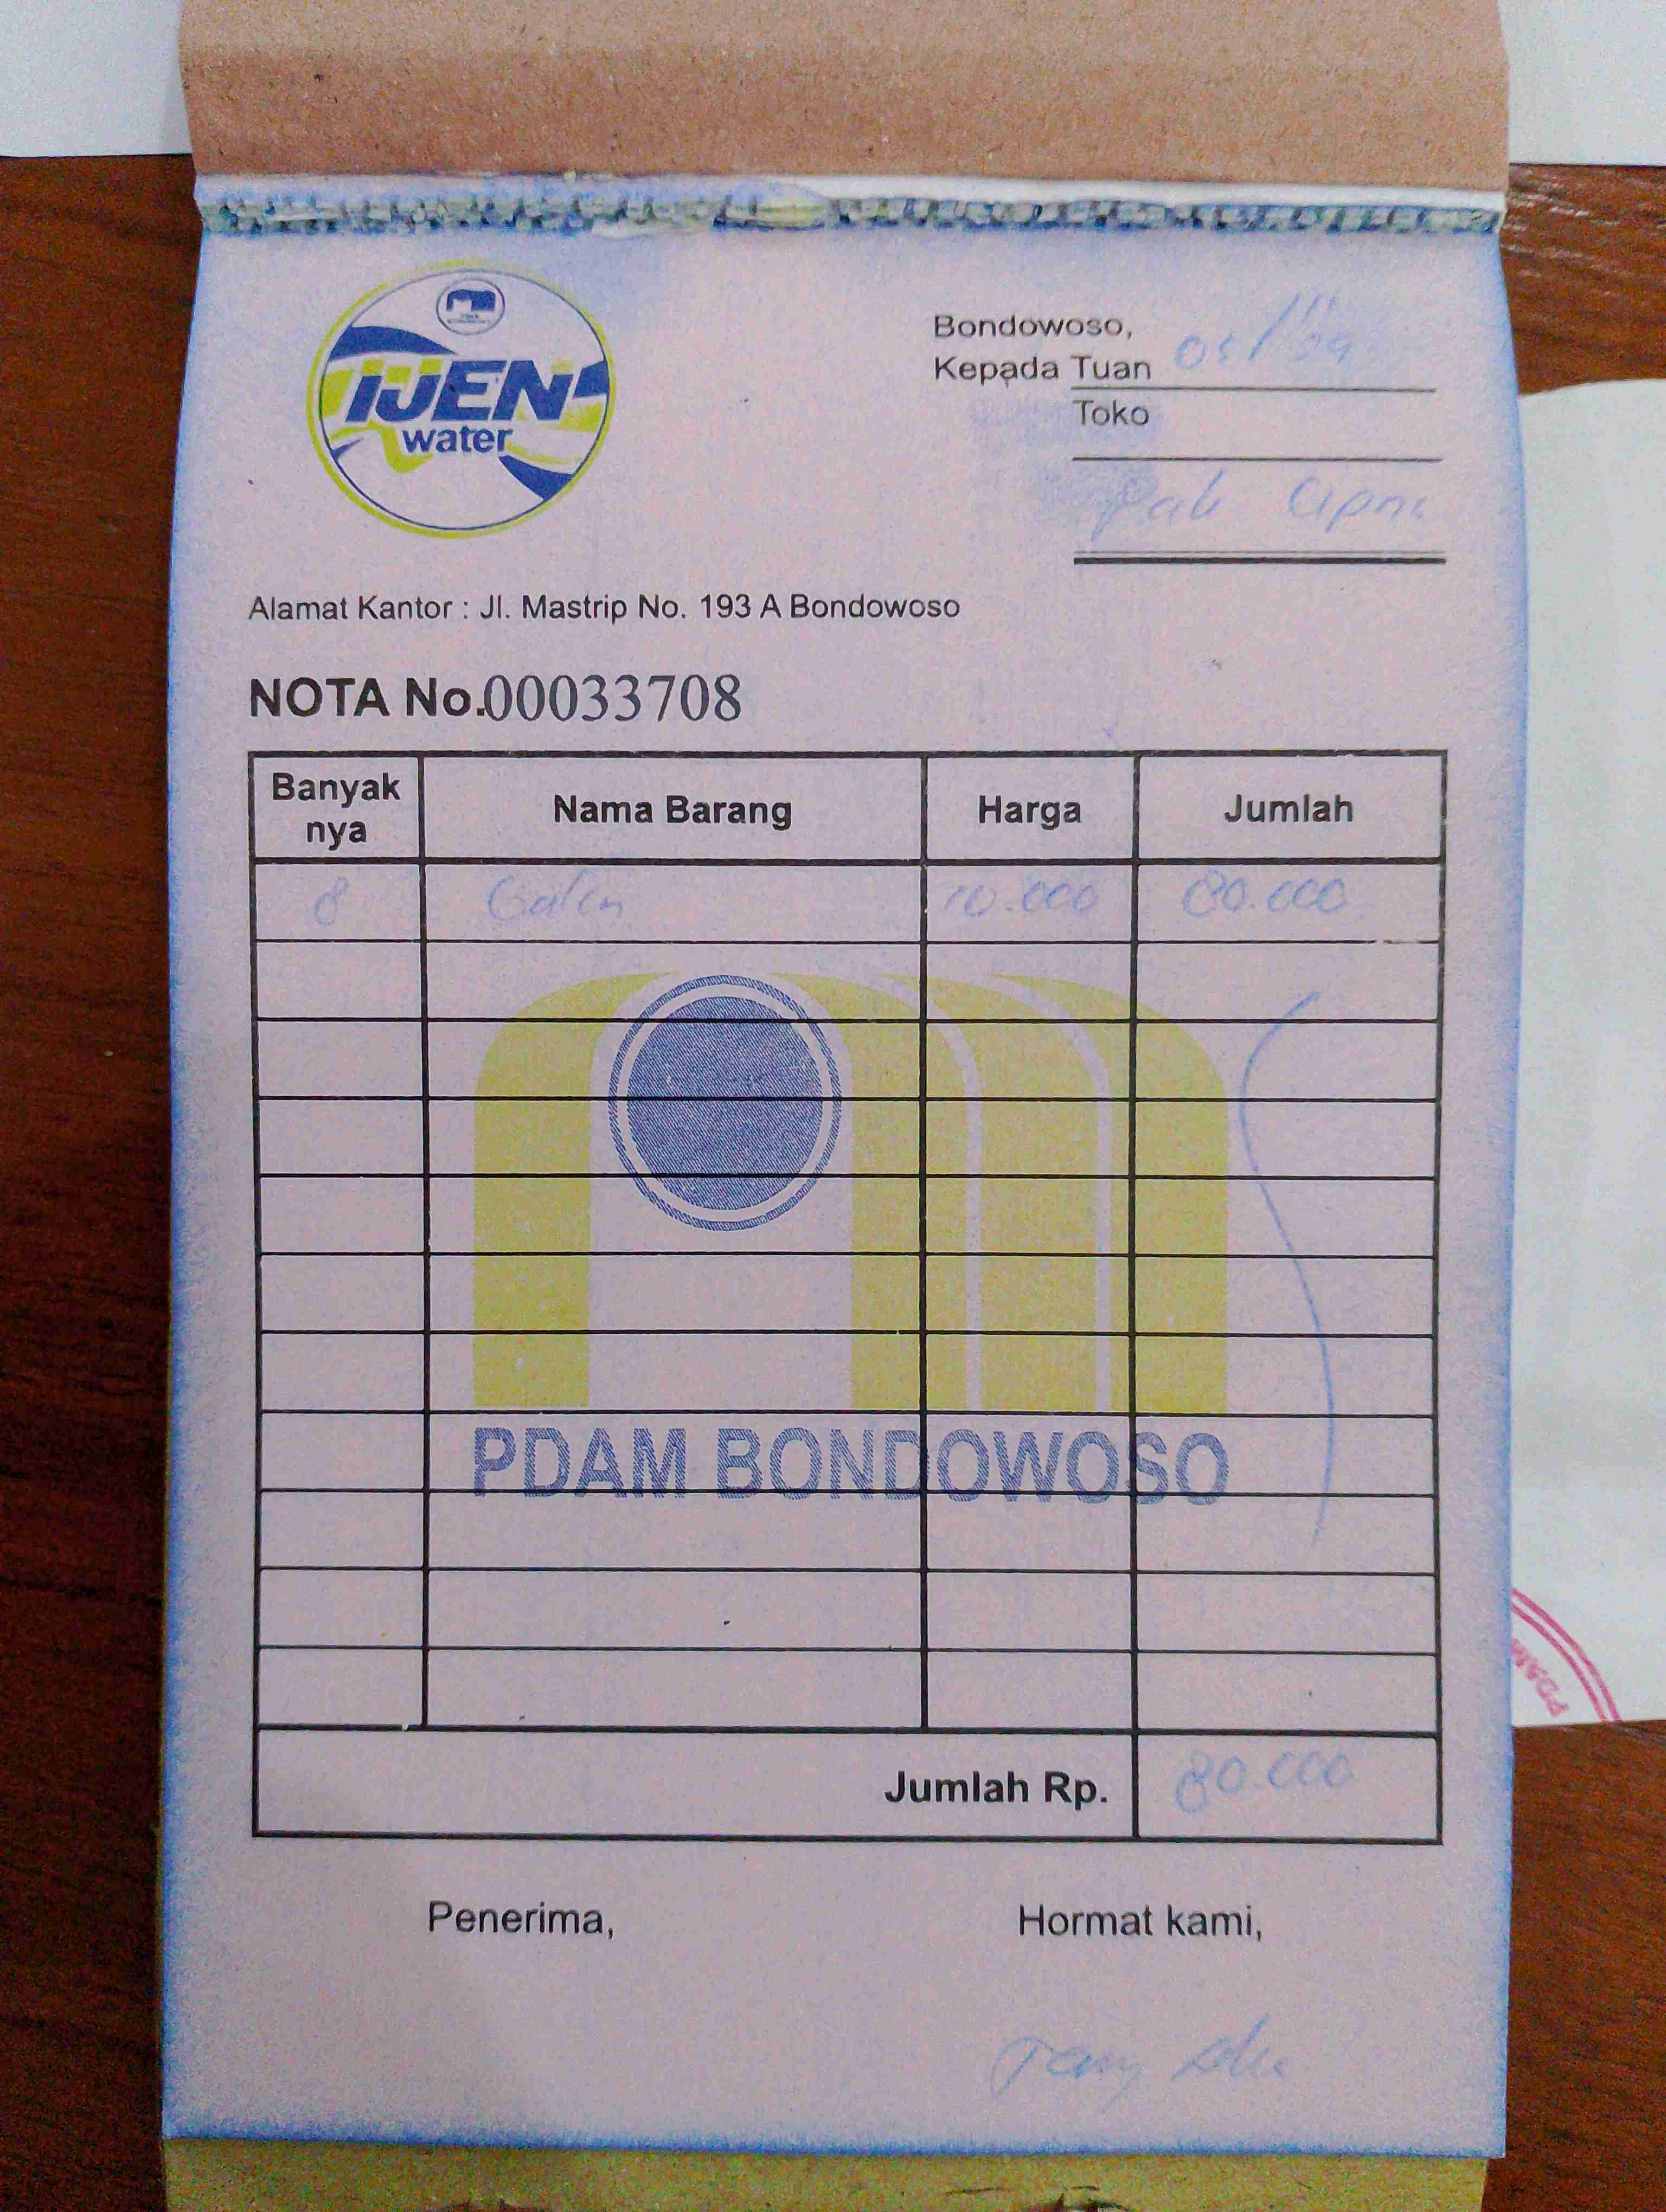 IJEN
water
Bondowoso,
Kepada Tuan
Toko
Pak
Alamat Kantor : Jl. Mastrip No. 193 A Bondowoso
NOTA No.00033708
Banyak nya Nama Barang Harga Jumlah
8 Galon 10.000 80.000
PDAM BONDOWOSO
Jumlah Rp. 80.000
Penerima, Hormat kami,
PDAM